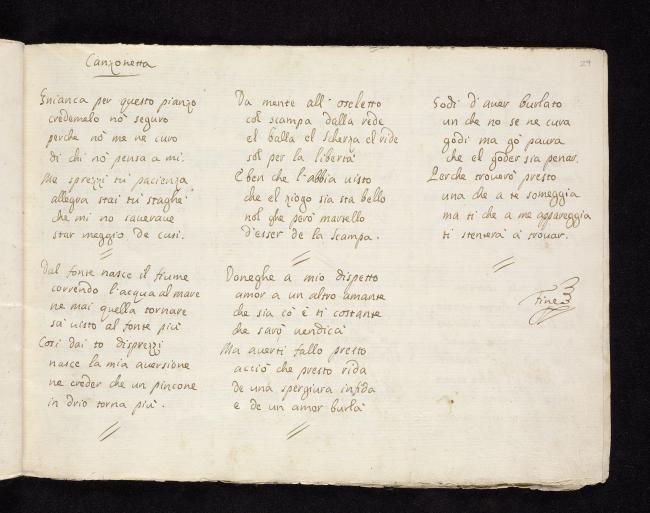 Canzonetta
29
Gnianca per questo pianzo
credemelo nò seguro
perche nò me ne curo
di chi nò pensa a mi.
Me sprezzi tu pacienza
allegra stai tu staghe
che mi no saverave
star meggio de cusi.
Dal fonte nasce il fiume
correndo l'acqua al mare
ne mai quella tornare
sa visto al fonte più
Così dai to disprezzi
nasce la mia aversione
ne creder che un pincone
in drio torna più.
Da mente all' oseletto
col scampa dalla rede
el balla el scherza el ride
sol per la libertà
E ben che l'abbia visto
che el ziogo sia sta bello
nol ghe però martello
d'esser de la scampa.
Doneghe a mio dispetto
amor a un altro amante
che sia cò è ti costante
che sarò vendicà
Ma averti fallo presto
acciò che presto rida
de una spergiura infida
e de un amor burlà
Godi d'aver burlato
un che no se ne cura
godi ma gò paura
che el goder sia penar.
Perche troverò presto
una che a te someggia
ma ti che a me appareggia
ti stenterà à trovar.
Fine